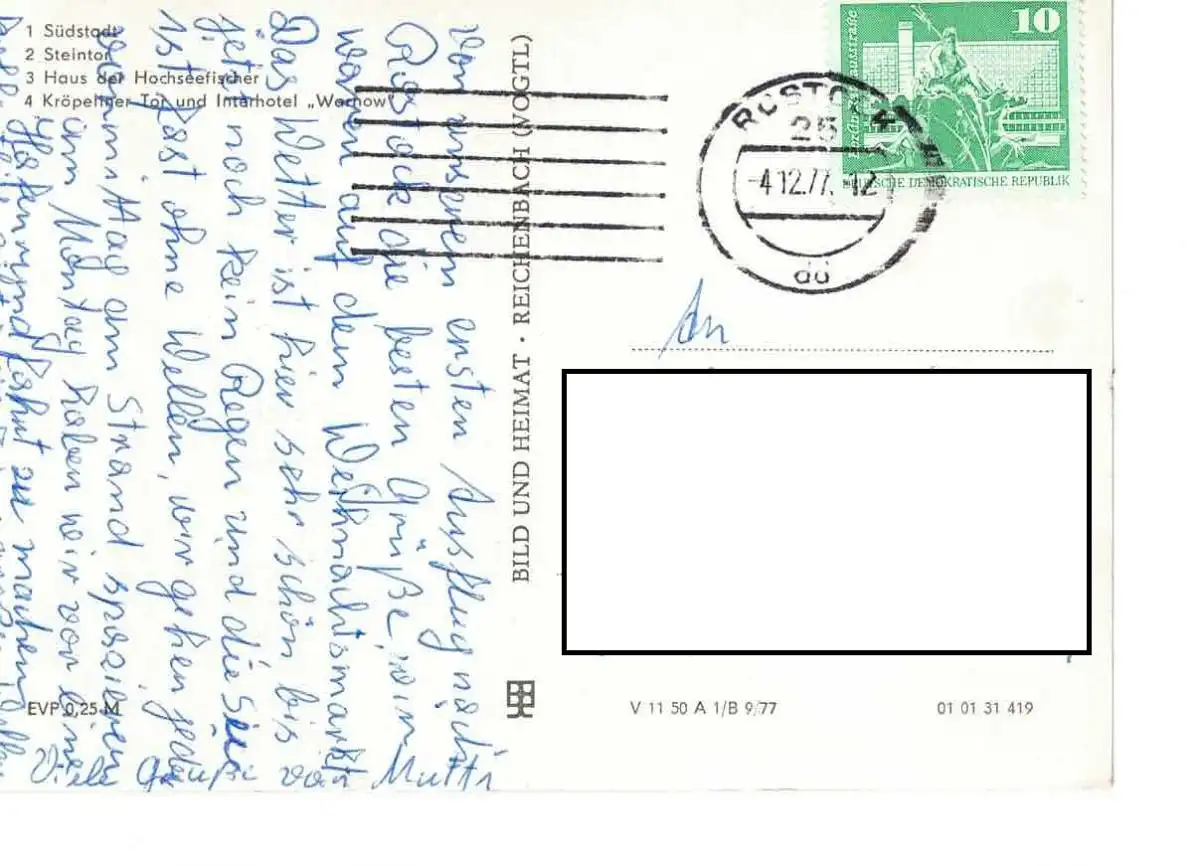 1 Südstadt
2 Steintor
3 Haus der Hochseefischer
4 Kröpeliner Tor und Interhotel „Warnow"
Von unserem ersten Ausflug nach
Rostock die besten Grüße, wir
waren auf dem Weihnachtsmarkt
Das Wetter ist hier sehr schön bis
jetzt noch kein Regen und die See
ist fast ohne Wellen, wir gehen jeden
Vormittag am Strand spazieren
am Montag haben wir vor eine
Hafenrundfahrt zu machen
Viele Grüße von Mutti
EVP 0,25 M
BILD UND HEIMAT · REICHENBACH (VOGTL)
10
DEUTSCHE DEMOKRATISCHE REPUBLIK
ROSTOCK
25
-4.12.77.-12
dd
An
V 11 50 A 1/B 9/77
01 01 31 419